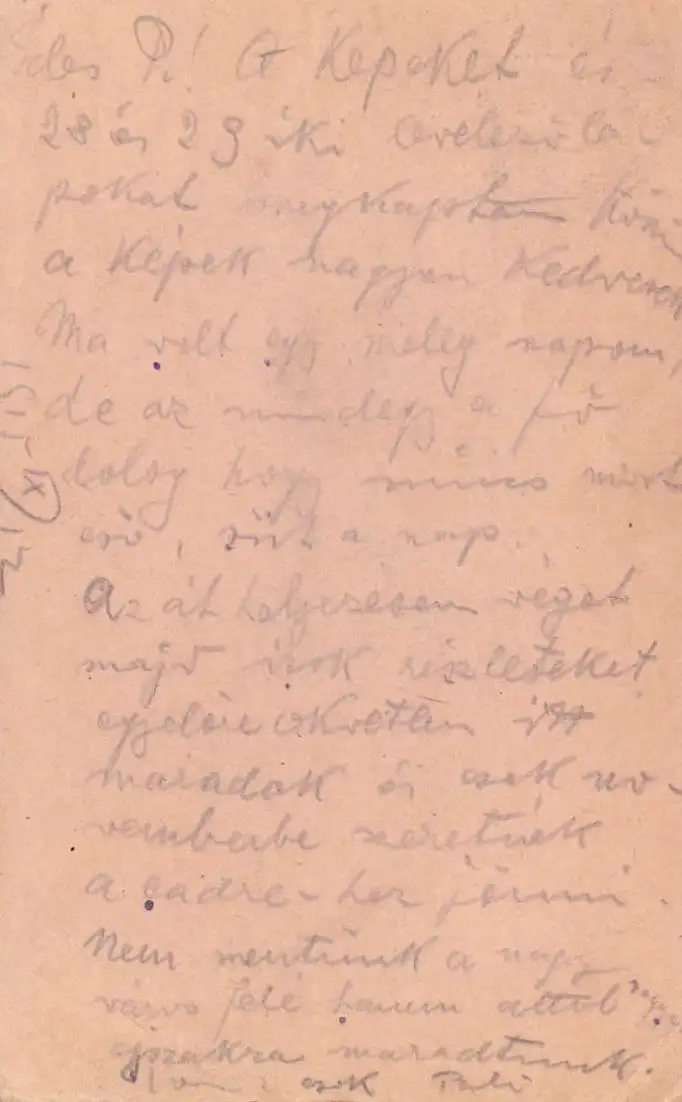 Édes P.! A Képeket és
28 és 29 iki levelezőla-
pokat megkaptam Kösz
a Képek nagyon Kedvesek
Ma volt egy meleg napom,
de az mindegy a fő
dolog hogy nincs most
eső, süt a nap.
Az áthelyezésem végett
majd irok részleteket
egyelőre okvetlen itt
maradok és csak no-
vemberbe szeretnék
a cadre-hoz jönni.
Nem mentünk a nagy
város felé hanem attól
éjszakra maradtunk.
csók Pali